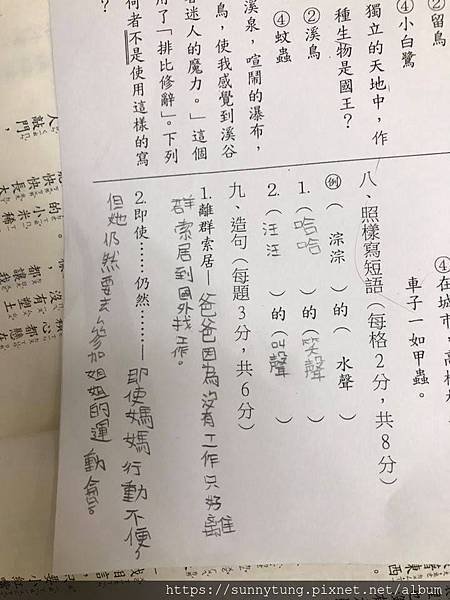 ②留鳥
④小白鷺
獨立的天地中，作
種生物是國王？
②溪鳥
④蚊蟲
溪泉，喧鬧的瀑布，
鳥，使我感覺到溪谷
迷人的魔力。」這個
用了「排比修辭」。下列
何者不是使用這樣的寫
？
④在城市，高
車子一如甲蟲。
八、照樣寫短語（每格2分，共8分）
例（淙淙）的（水聲）
1.（哈哈）的（笑聲）
2.（汪汪）的（叫聲）
九、造句（每題3分，共6分）
1.離群索居—爸爸因為沒有工作只好離
群索居到國外找工作。
2.即使……仍然……—即使媽媽行動不便，
但她仍然要去參加姐姐的運動會。
人敲門，
快快長大
的小米稀
都讓我
沒有塑土
心都懸在
東西。
https://sunnytung.pixnet.net/album